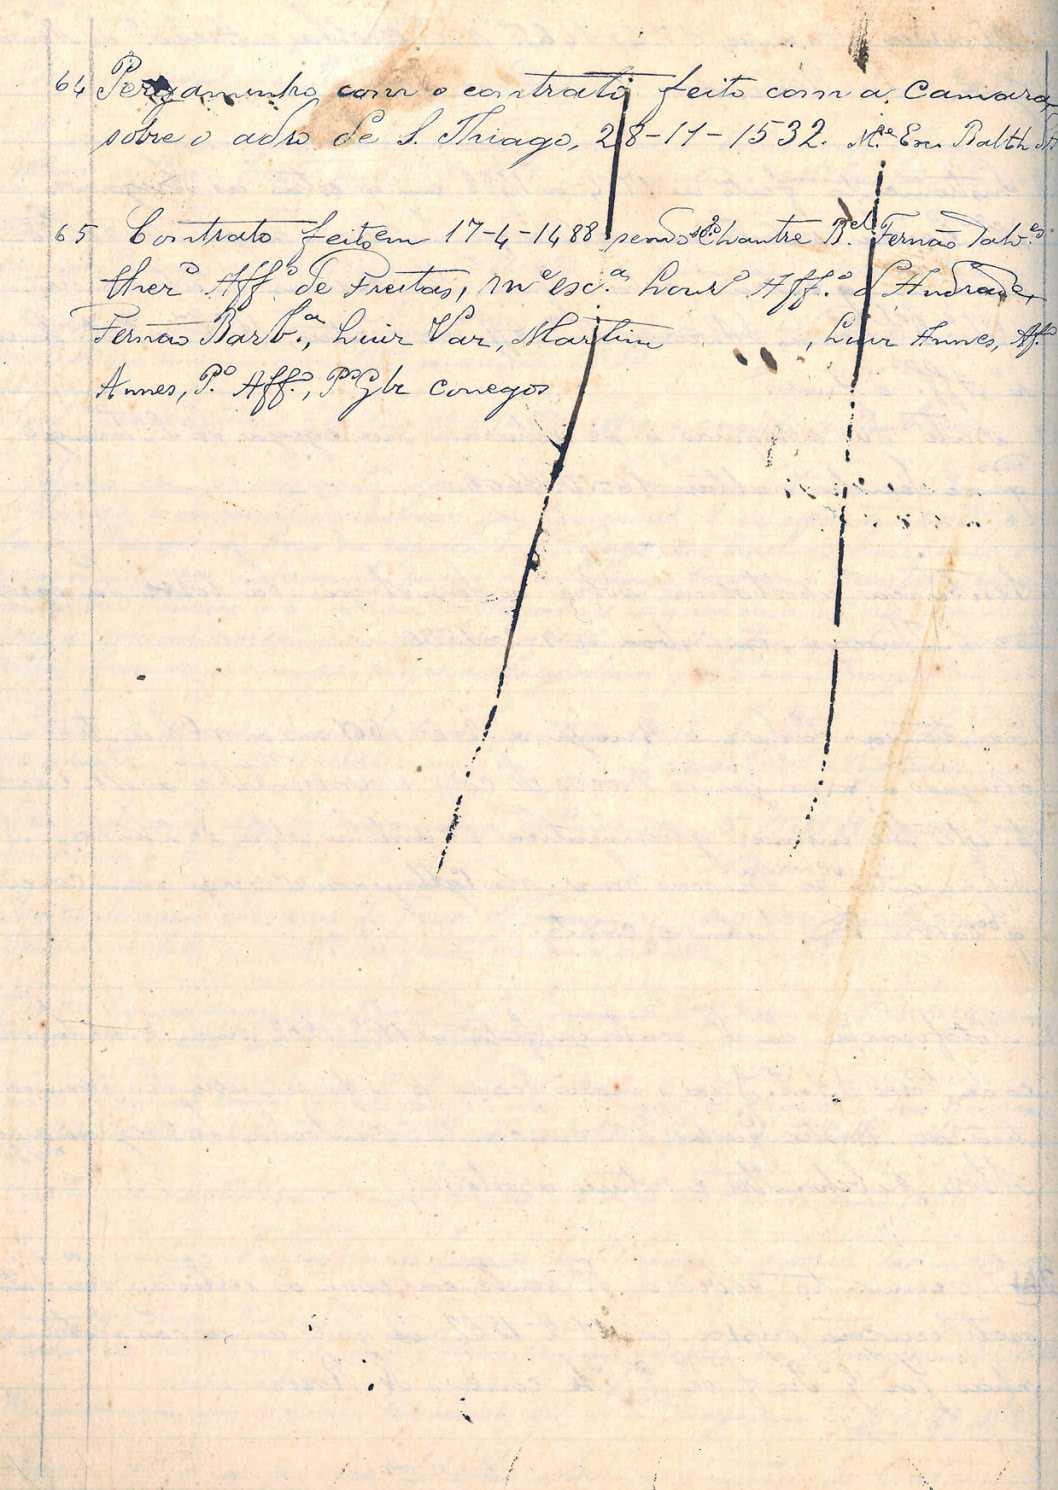 64 Pergaminho com o contrato feito com a Camara
sobre o adro de S. Thiago, 28-11-1532. M.el Esc. Balth
65 Contrato feito em 17-4-1488 sendo Chantre B.el Fernão
ther.o Aff.o de Freitas, m.e esc.a Lour.o Aff.o d'Andrade,
Fernão Barb.a, Luiz Vaz, Martim , Luiz Annes, Aff.o
Annes, P.o Aff.o, P.o Glz conegos